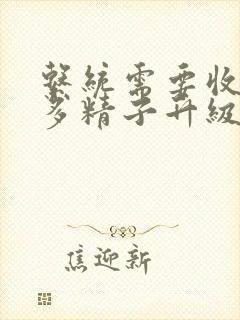 繫統需要收
多精子升級
焦迎新